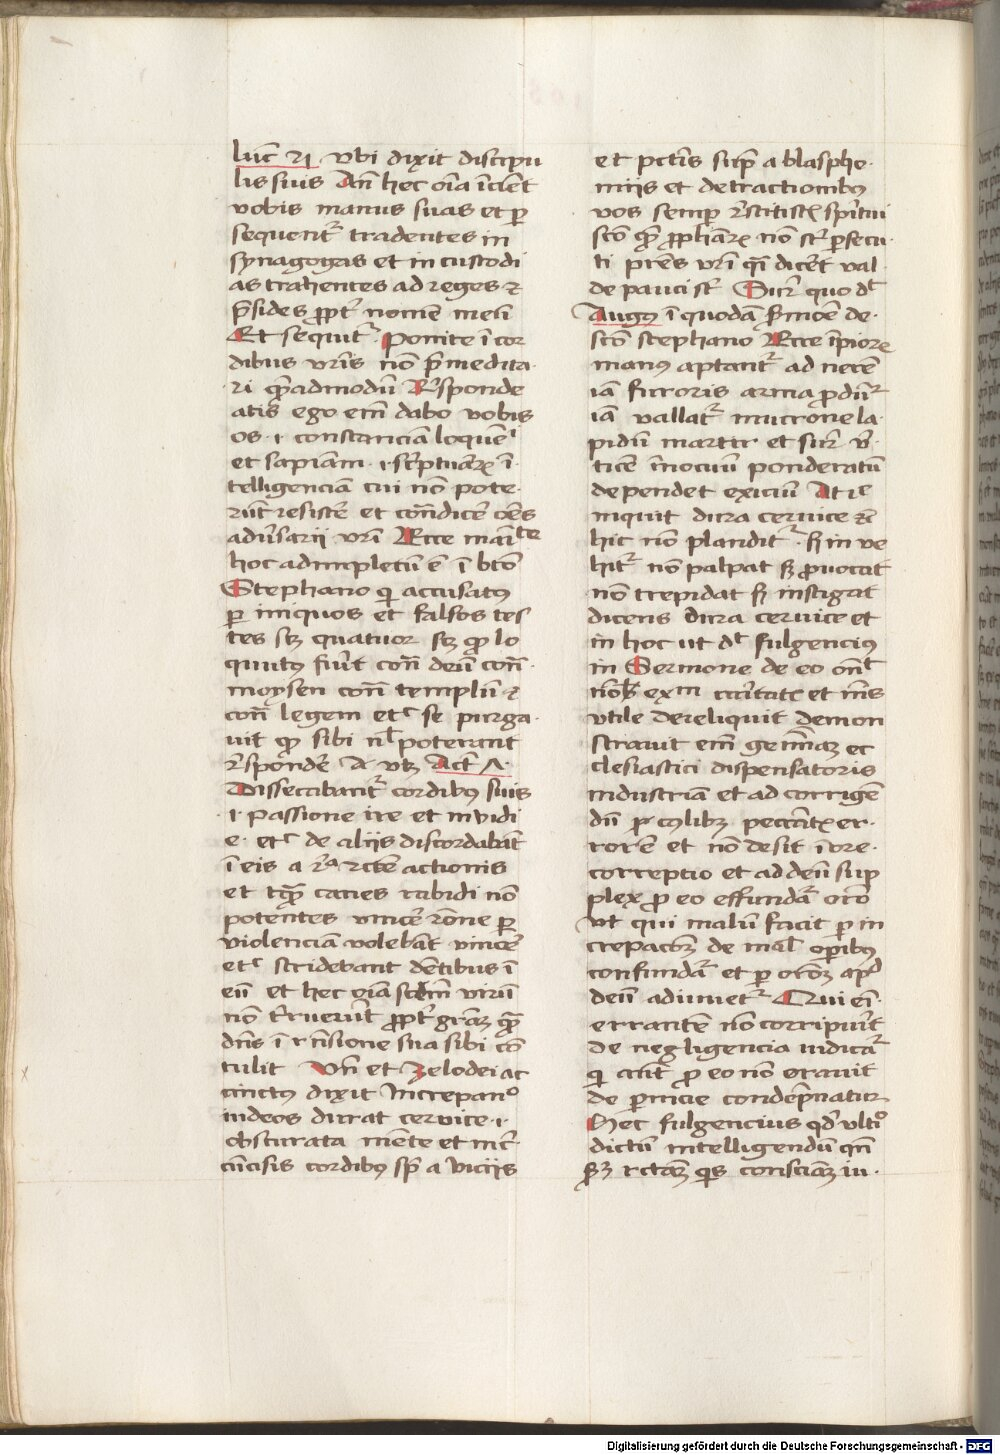 luc̄ 21 vbi dixit discipu
lis suis An̄ hec oīa īiciēt
vobis manus suas et p̲
sequent᷑ tradentes in
synagogas et in custodi
as trahentes ad reges ⁊
p̄sides ꝓpt᷑ nomen meū
Et sequit᷑ ponite ī cor
dibus vr̄is nō p̄medita-
ri quēadmodū Rn̄sponde
atis ego em̄ dabo vobis
os · i · constanciam loquēᵈⁱ
et sapiam̄ · i · scripturaꝝ ī-
telligenciam cui nō pote-
rūt resistere et cont̄dicere oēs
adu̓sarii vr̄i Ecce mani᷑te
hoc adimpletū ē ī bt̄o
Stephano qui accusatus
per iniquos et falsos tes
tes scꝫ quatuor scꝫ quod lo
quutus fu̓it con̄ deū con̄
moysen con̄ templū ⁊
con̄ legem etᶜ se purga-
uit quod sibi nl̄ poterant
respondere Vt vꝫ Act̄ 7
Dissecabant᷑ cordibus suis
· i · passione ire et inuidi
e · etᶜ de aliis discordabāt
ī eis
et tanquam canes rabidi nō
potentes vincere rōne per
violenciam volebāt vincere
etᶜ stridebant dētibus ī
eū et hec oīa sctm̄ virū
nō tr̄ruerūt ꝓpt᷑ grām quā
dn̄s ī sua sibi cō
tulit Vn̄ et zelo dei ac
cinctus dixit Increpanᵈᵒ
iudeos durat ceruice · i ·
obscurata mēte et incir
cūcisis cordibus sp̄ a viciis
et pctīs sup̄ a blasphe-
miis et detractionibus
vos semp̲ restitistis spiritui
sctō quē ꝓphetaꝝ nō st̄ persecu-
ti pr̄es vr̄i q̄si dicēt val-
de pauci st̄ Sup̲ quo dt̄
Augus ī quodā sermōe de
sctō stephano Ecce īpioꝝ
manus aptant᷑ ad necē
iā furoris arma produnt᷑
iā vallat᷑ mucrone la-
pidū martir et sup̲ ver-
ticē īnocuū ponderatū
dependet exiciū At ille
inquit dura ceruice etc̄
hic nō plaudit᷑ · sꝫ in ve
hit᷑ nō palpat sꝫ prouocat
nō trepidat sꝫ instigat
dicens dura ceruice et
in hoc ut dt̄ fulgencius
in Sermone de eo ōndt̄
nōbis exm̄ caritatis et īmis
vtile dereliquit demon
strauit em̄ geminaꝫ ec
clesiastici dispensatoris
industriam et ad corrigē
dū peccātis er-
rorē et nō desit ī ore
correptio et ad deū sup
plex pro eo effundat᷑ oro
Vt qui malū facit per in
crepacōꝫ de mal̄ operibus
confundat᷑ et per orōꝫ apᵈ
deū adiuuet᷑ Qui em̄
errantē nō corripuerit
de negligencia iudicat᷑
qui aūt pro eo nō orauit
de pernicie condempnatur
Hec fulgencius qd̓ vltīo
dictū intelligendū qn̄
scdꝫ rctāꝫ quis consciāꝫ iu-